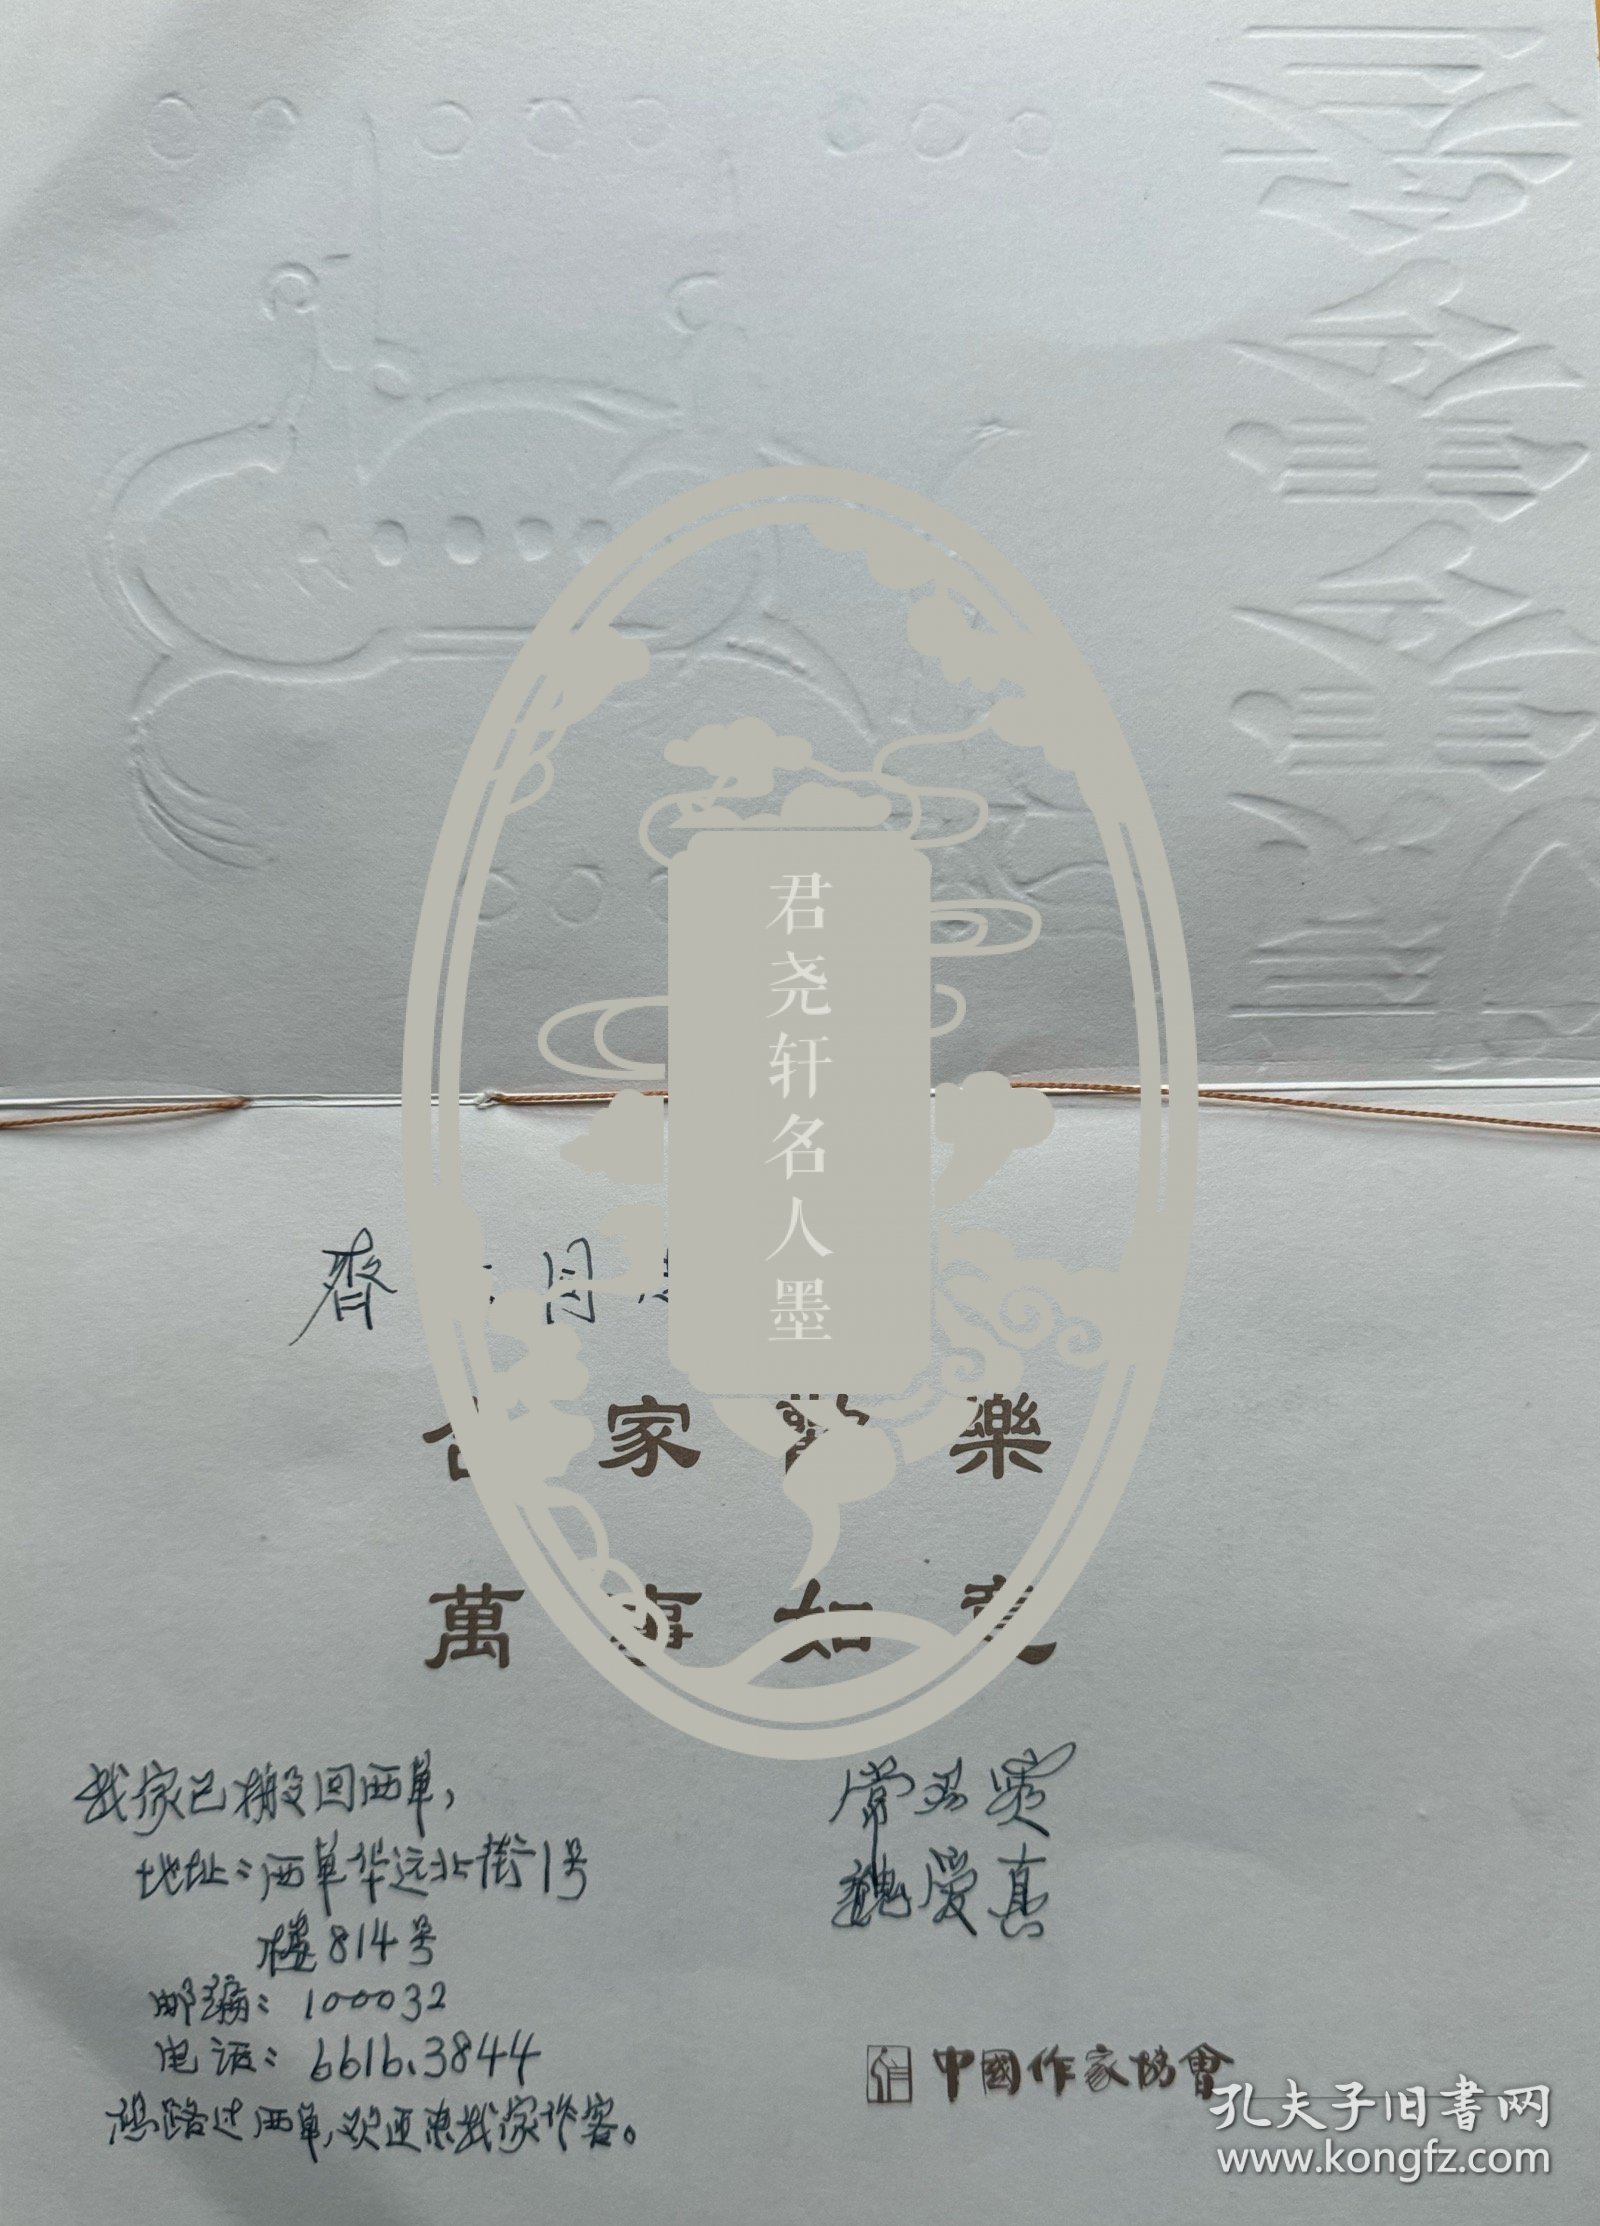 君尧轩名人墨
同
家 樂
萬事如意
我家已搬回西单，
地址：西单华远北街1号
楼814号
邮编：100032
电话：6616.3844
路过西单，欢迎来我家作客。
常
魏爱真
中國作家協會
孔夫子旧书网
www.kongfz.com